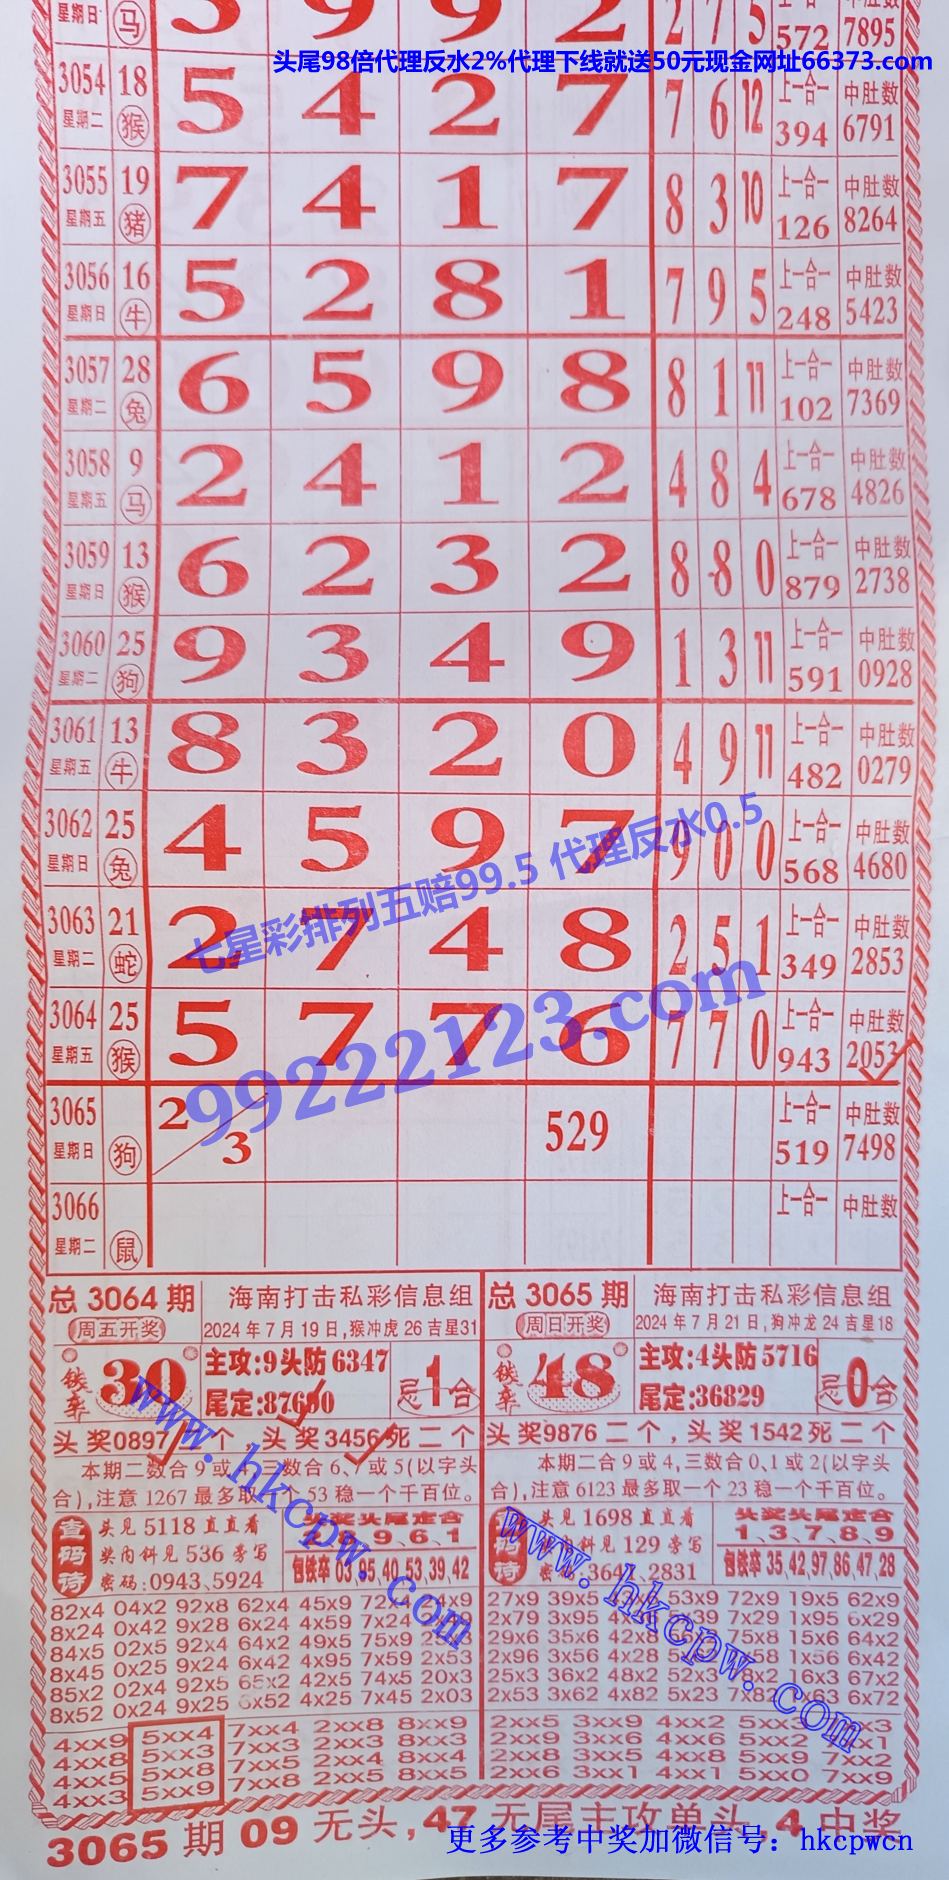 星期日 马 3 9 9 2 2 7 5 572 7895
头尾98倍代理反水2%代理下线就送50元现金网址66373.com
3054 18 5 4 2 7 7 6 12 上一合一 中肚数
星期二 猴 394 6791
3055 19 7 4 1 7 8 3 10 上一合一 中肚数
星期五 猪 126 8264
3056 16 5 2 8 1 7 9 5 上一合一 中肚数
星期日 牛 248 5423
3057 28 6 5 9 8 8 1 11 上一合一 中肚数
星期二 兔 102 7369
3058 9 2 4 1 2 4 8 4 上一合一 中肚数
星期五 马 678 4826
3059 13 6 2 3 2 8 8 0 上一合一 中肚数
星期日 猴 879 2738
3060 25 9 3 4 9 1 3 11 上一合一 中肚数
星期二 狗 591 0928
3061 13 8 3 2 0 4 9 11 上一合一 中肚数
星期五 牛 482 0279
3062 25 4 5 9 7 9 0 0 上一合一 中肚数
星期日 兔 568 4680
七星彩排列五赔99.5 代理反水0.5
3063 21 2 7 4 8 2 5 1 上一合一 中肚数
星期二 蛇 349 2853
3064 25 5 7 7 6 7 7 0 上一合一 中肚数
星期五 猴 943 2053
99222123.com
3065 2 3 529 上一合一 中肚数
星期日 狗 519 7498
3066 上一合一 中肚数
星期二 鼠
总 3064 期 海南打击私彩信息组
周五开奖 2024年7月19日,猴冲虎26吉星31
铁卒 30 主攻:9头防6347
尾定:87650 忌1合
头奖0897 个,头奖3456死二个
本期二数合9或4,三数合6、7或5(以字头
合),注意1267最多取 个53稳一个千百位。
查码诗 头见5118直直看
奖内斜见536旁写
密码:0943、5924
头奖头尾走合
9、6、1
包铁卒 03、95、40、53、39、42
82x4 04x2 92x8 62x4 45x9 72x4 24x9
8x24 0x42 9x28 6x24 4x59 7x24
84x5 02x5 92x4 64x2 49x5 75x9
8x45 0x25 9x24 6x42 4x95 7x59 2x53
85x2 02x4 92x5 65x2 42x5 74x5 20x3
8x52 0x24 9x25 6x52 4x25 7x45 2x03
4xx9 5xx4 7xx4 2xx8 8xx9
4xx8 5xx3 7xx3 2xx3 8xx3
4xx5 5xx8 7xx5 2xx4 8xx4
4xx3 5xx9 7xx8 2xx5 8xx5
www.hkcpw.com
总 3065 期 海南打击私彩信息组
周日开奖 2024年7月21日,狗冲龙24吉星18
铁卒 48 主攻:4头防5716
尾定:36829 忌0合
头奖9876二个,头奖1542死二个
本期二合9或4,三数合0、1或2(以字头
合),注意6123最多取一个23稳一个千百位。
头见1698直直看
斜见129旁写
密码:3641、2831
头奖头尾走合
1、3、7、8、9
包铁卒 35、42、97、86、47、28
27x9 39x5 53x9 72x9 19x5 62x9
2x79 3x95 7x29 1x95 6x29
29x6 35x6 42x8 75x8 15x6 64x2
2x96 3x56 4x28 1x56 6x42
25x3 36x2 48x2 52x3 16x3 67x2
2x53 3x62 4x82 5x23 7x82 6x72
2xx5 3xx9 4xx2 5xx3
2xx9 3xx6 4xx6 5xx2
2xx8 3xx5 4xx8 5xx9 7xx2
2xx6 3xx1 4xx1 5xx0 7xx9
www.hkcpw.com
3065期09无头,47无尾主攻单头,4中奖
更多参考中奖加微信号：hkcpwcn